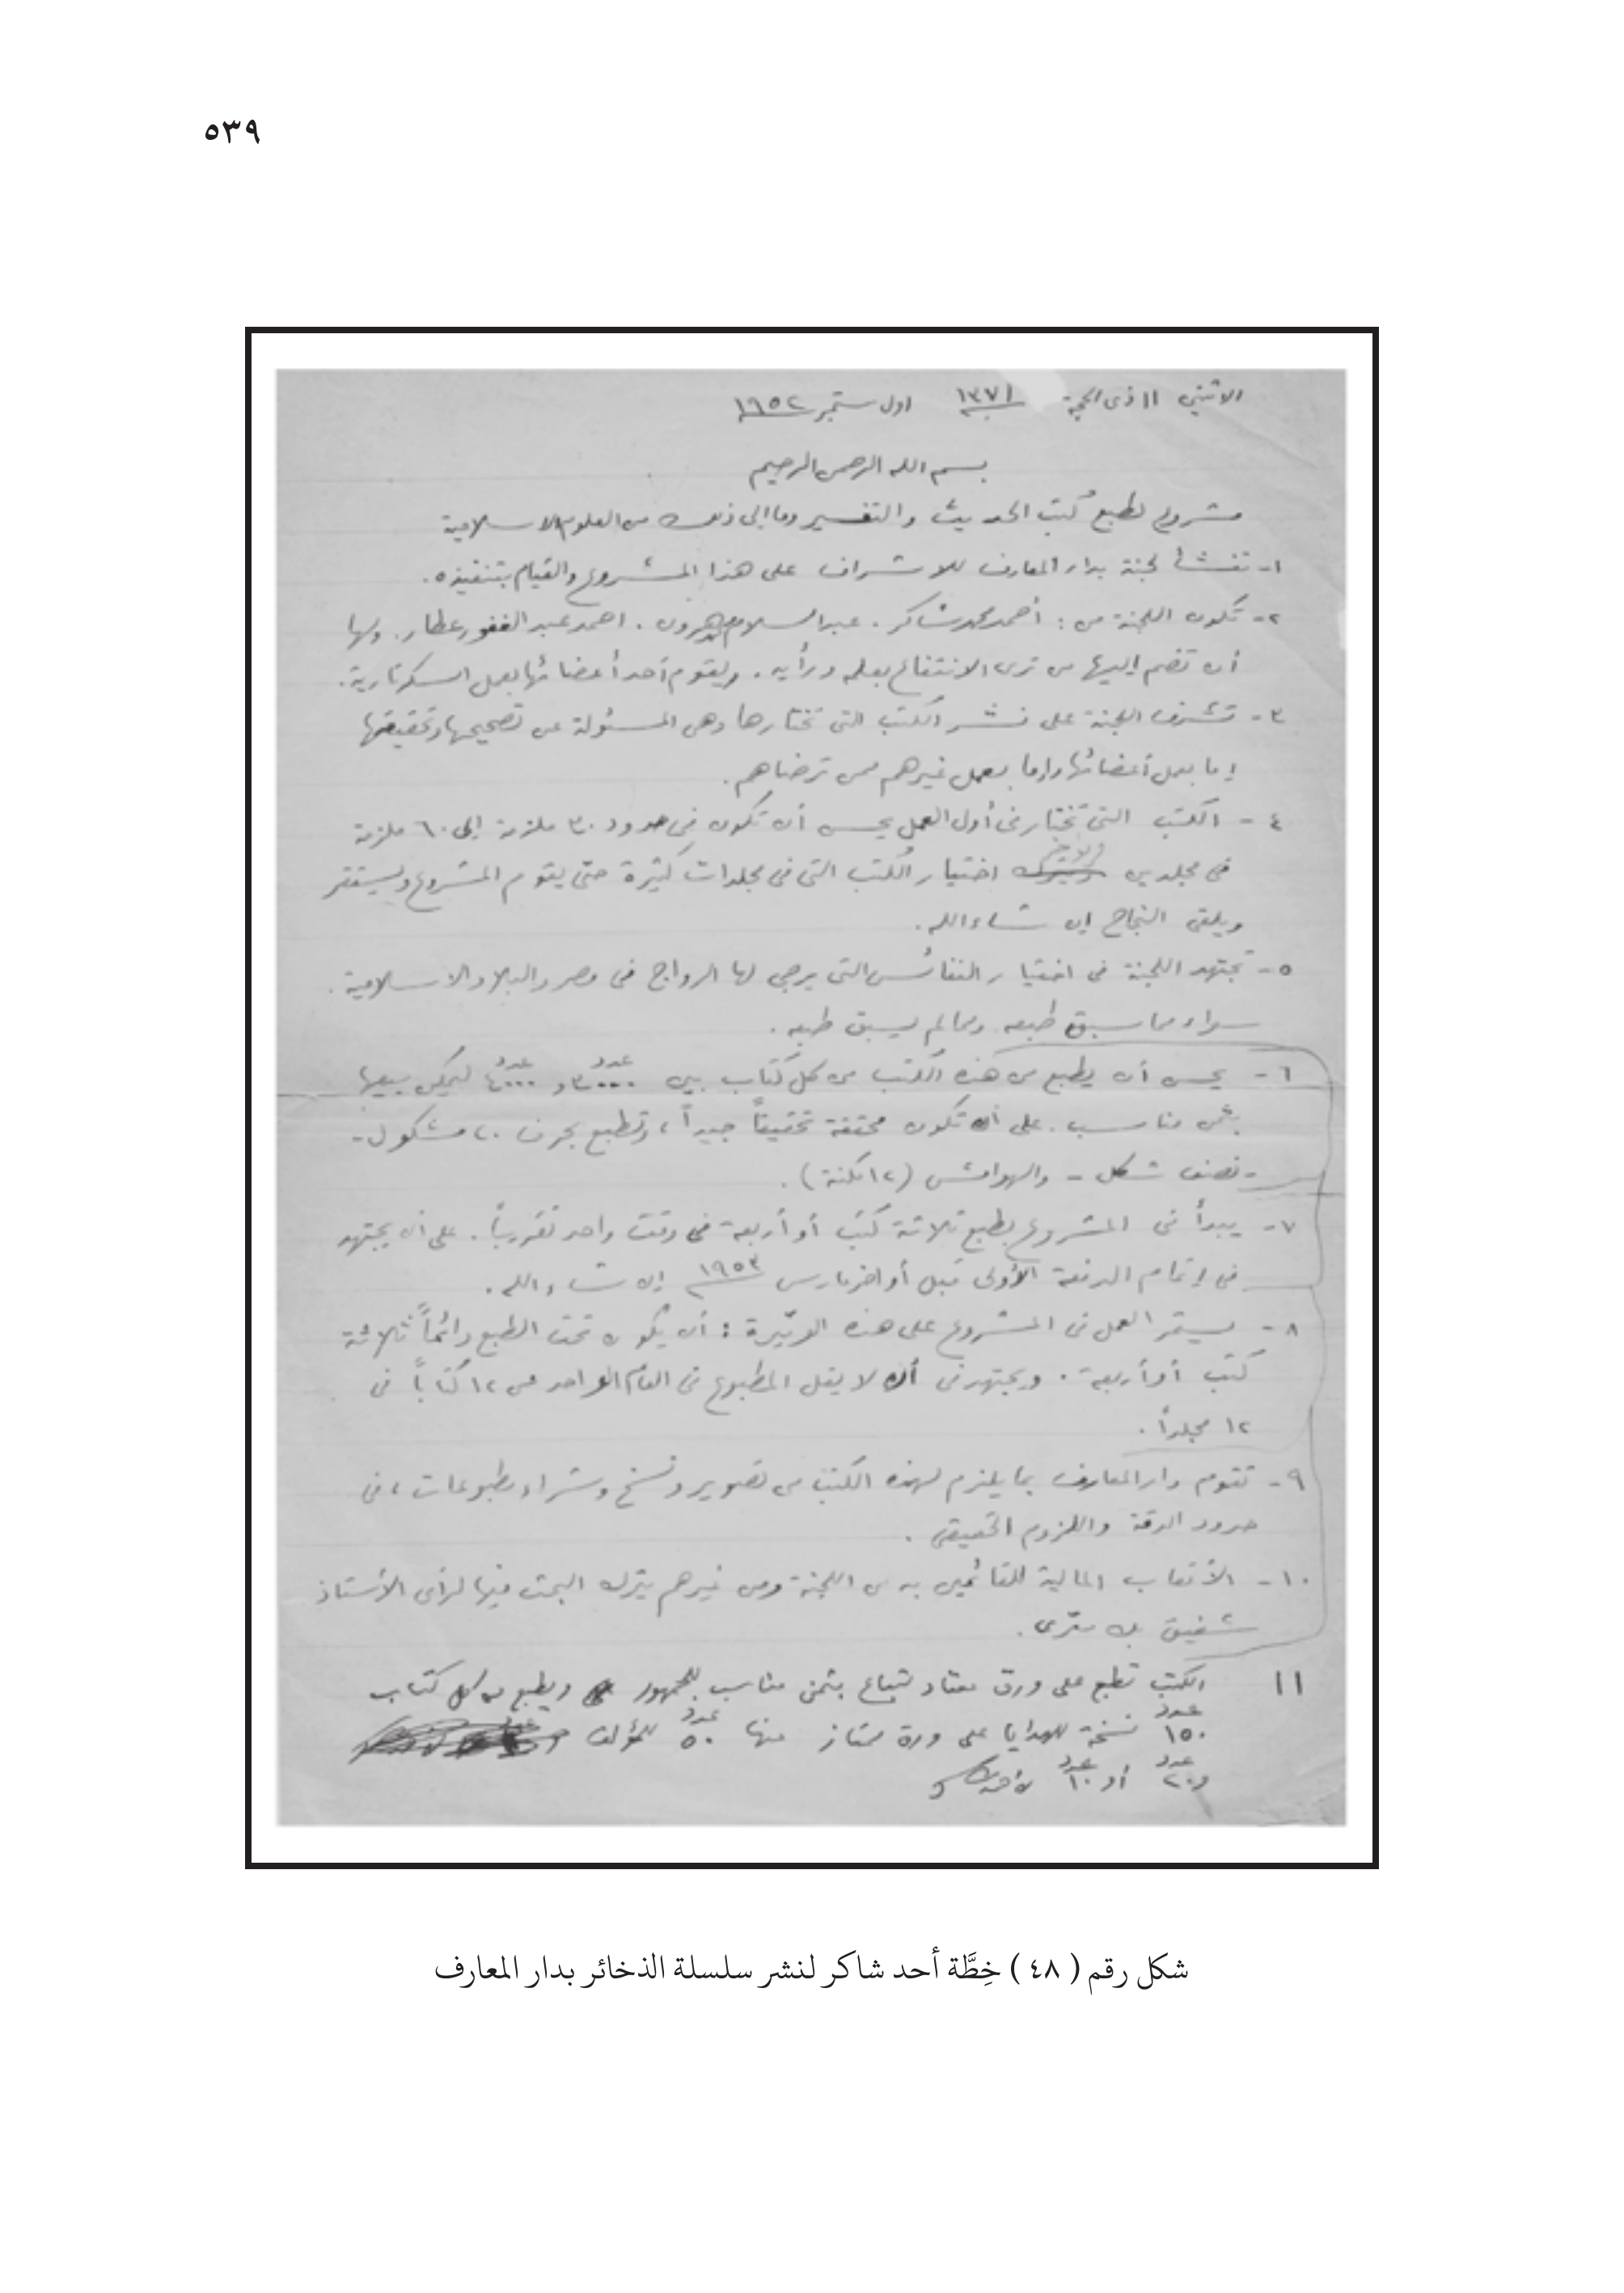 ٥٣٩
الاثنين ١١ ذى الحجة ١٣٧١ اول ستمبر ١٩٥٢
بسم الله الرحمن الرحيم
مشروع لطبع كتب الحديث والتفسير وما إلى ذلك من العلوم الاسلامية
١- تنشأ لجنة بدار المعارف للاشراف على هذا المشروع والقيام بتنفيذه .
٢- تكون اللجنة من : أحمد محمد شاكر . عبد السلام هرون . احمد عبد الغفور عطار . ولها
أن تضم إليها من ترى الانتفاع بعلمه ورأيه . ويقوم أحد أعضائها بعمل السكرتارية .
٣- تشرف اللجنة على نشر الكتب التى تختارها وهى المسئولة عن تصحيحها وتحقيقها
إما بعمل أعضائها وإما بعمل غيرهم ممن ترضاهم .
٤- الكتب التى تختار فى أول العمل يحسن أن تكون فى حدود ٣٠ ملزمة إلى ٦٠ ملزمة
فى مجلدين اختيار الكتب التى فى مجلدات كثيرة حتى يقوم المشروع ويستقر
ويلقى النجاح إن شاء الله .
٥- تجتهد اللجنة فى اختيار النفائس التى يرجى لها الرواج فى مصر والبلاد الاسلامية .
سواء مما سبق طبعه ومما لم يسبق طبعه .
٦- يحسن أن يطبع من هذه الكتب من كل كتاب بين عدد ٣٠٠٠ و عدد ٤٠٠٠ ليمكن بيعها
بثمن مناسب . على أن تكون محققة تحقيقاً جيداً ، وتطبع بحرف ٢٠ مشكول -
- نصف شكل - والهوامش (١٢ مكنة) .
٧- يبدأ فى المشروع بطبع ثلاثة كتب أو أربعة فى وقت واحد تقريباً . على أن يجتهد
فى إتمام الدفعة الأولى قبل أواخر مارس ١٩٥٣ إن شاء الله .
٨- يستمر العمل فى المشروع على هذه الوتيرة : أن يكون تحت الطبع دائماً ثلاثة
كتب أو أربعة . ويجتهد فى أن لا يقل المطبوع فى العام الواحد عن ١٢ كتاباً فى
١٢ مجلداً .
٩- تقوم دار المعارف بما يلزم لهذه الكتب من تصوير ونسخ وشراء مطبوعات ، فى
حدود الدقة واللزوم الحقيقى .
١٠- الأتعاب المالية للقائمين به من اللجنة ومن غيرهم يترك البحث فيها لرأى الأستاذ
شفيق بك مترى .
١١ الكتب تطبع على ورق معتاد لتباع بثمن مناسب للجمهور ويطبع من كل كتاب
عدد ١٥٠ نسخة للهدايا على ورق ممتاز منها عدد ٥٠ للمؤلف
و عدد ٢٠ أو عدد ١٠
شكل رقم ( ٤٨ ) خِطَّة أحد شاكر لنشر سلسلة الذخائر بدار المعارف